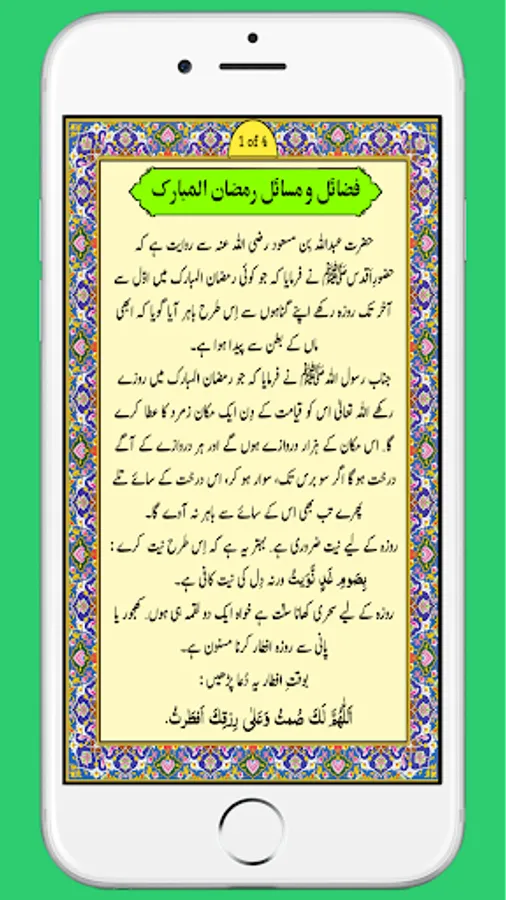 1 of 4
فضائل و مسائل رمضان المبارک
حضرت عبداللہ بن مسعود رضی اللہ عنہ سے روایت ہے کہ
حضورِاقدسﷺ نے فرمایا کہ جو کوئی رمضان المبارک میں اوّل سے
آخر تک روزہ رکھے اپنے گناہوں سے اِس طرح باہر آیا گویا کہ ابھی
ماں کے بطن سے پیدا ہوا ہے۔
جناب رسول اللہﷺ نے فرمایا کہ جو رمضان المبارک میں روزے
رکھے اللہ تعالیٰ اس کو قیامت کے دِن ایک مکان زمرد کا عطا کرے
گا. اس مکان کے ہزار دروازے ہوں گے اور ہر دروازے کے آگے
درخت ہو گا اگر سو برس تک، سوار ہو کر، اس درخت کے سائے تلے
پھرے تب بھی اس کے سائے سے باہر نہ آوے گا۔
روزہ کے لیے نیت ضروری ہے. بہتر یہ ہے کہ اِس طرح نیت کرے :
بِصَومِ غَدٍ نَّوَیتُ ورنہ دِل کی نیت کافی ہے۔
روزہ کے لیے سحری کھانا سنّت ہے خواہ ایک دو لقمہ ہی ہوں. کھجور یا
پانی سے روزہ افطار کرنا مسنون ہے۔
بوقتِ افطار یہ دُعا پڑھیں :
اَللّٰهُمَّ لَكَ صُمتُ وَعَلٰی رِزقِكَ اَفطَرتُ.